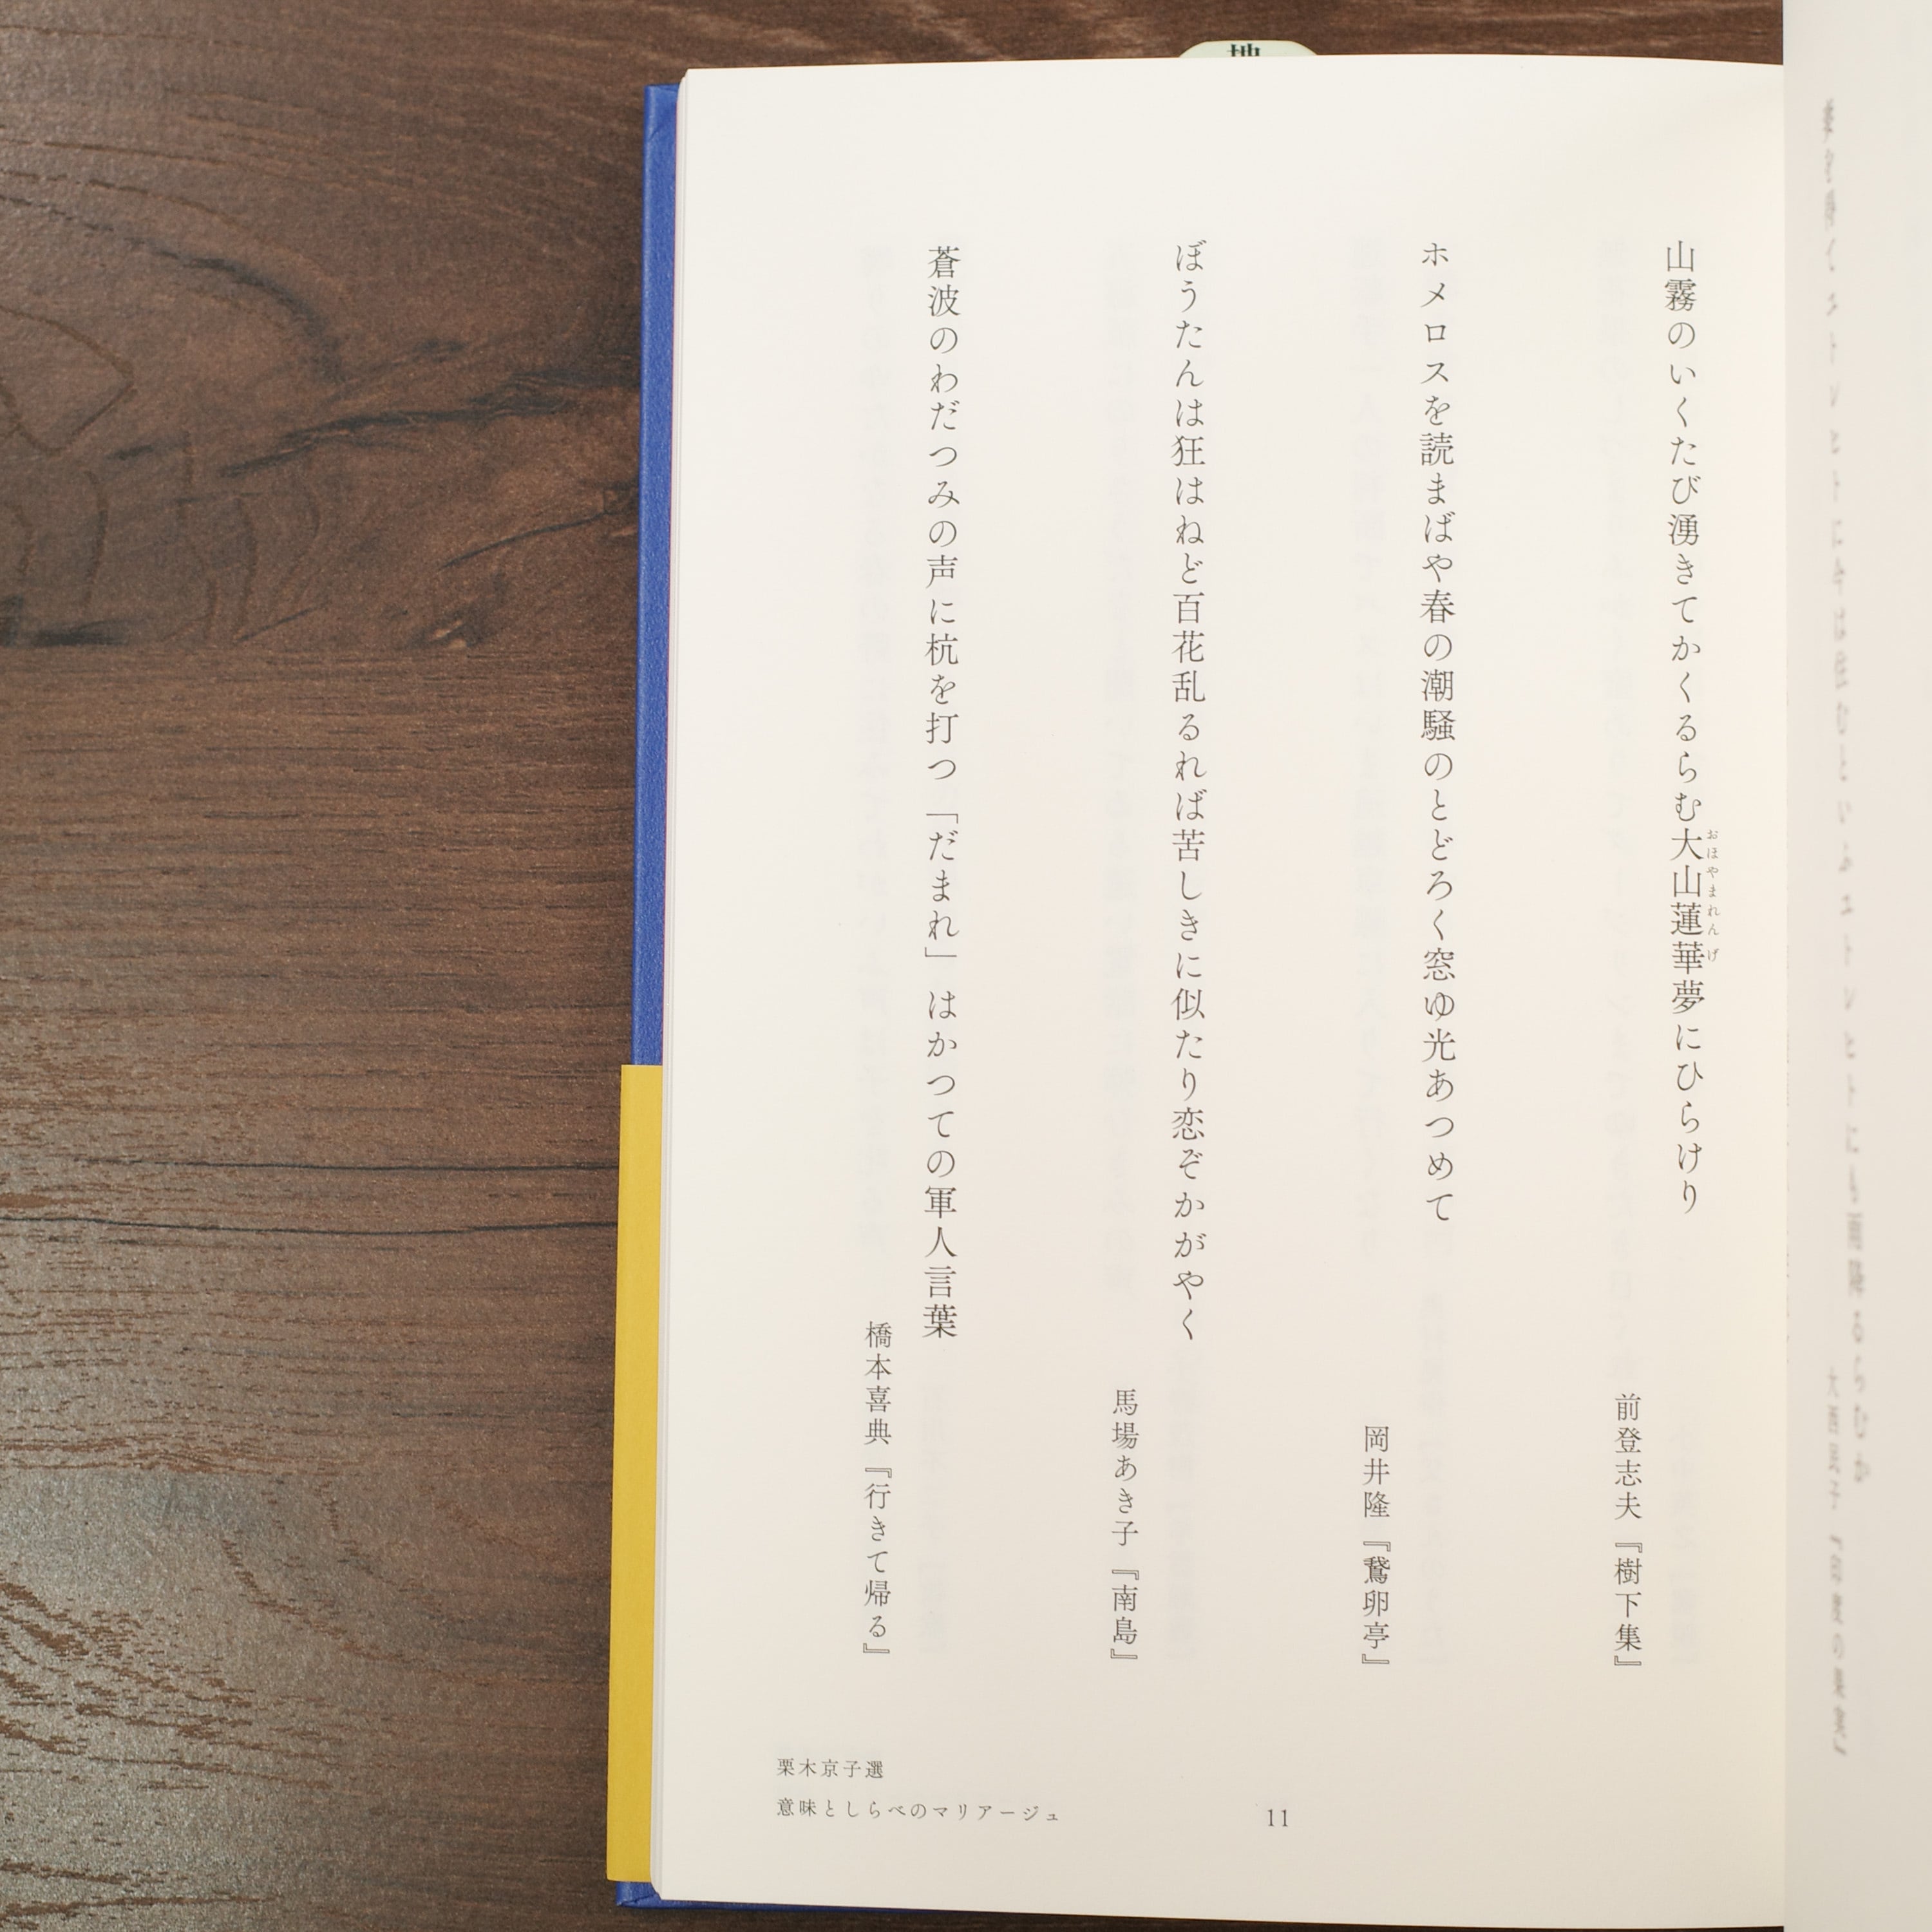 山霧のいくたび湧きてかくるらむ大山蓮華夢にひらけり
おほやまれんげ
前登志夫『樹下集』
ホメロスを読まばや春の潮騒のとどろく窓ゆ光あつめて
岡井隆『鵞卵亭』
ぼうたんは狂はねど百花乱るれば苦しきに似たり恋ぞかがやく
馬場あき子『南島』
蒼波のわだつみの声に杭を打つ「だまれ」はかつての軍人言葉
橋本喜典『行きて帰る』
栗木京子選
意味としらべのマリアージュ
11